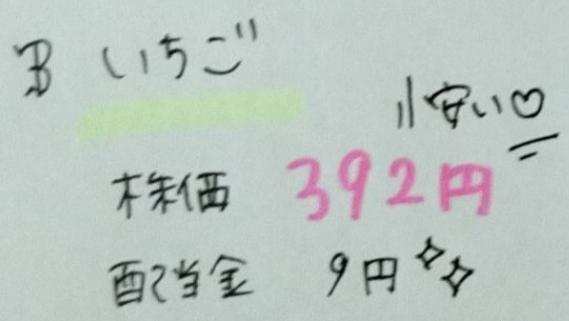 B いちご
安い♡
株価 392円
配当金 9円